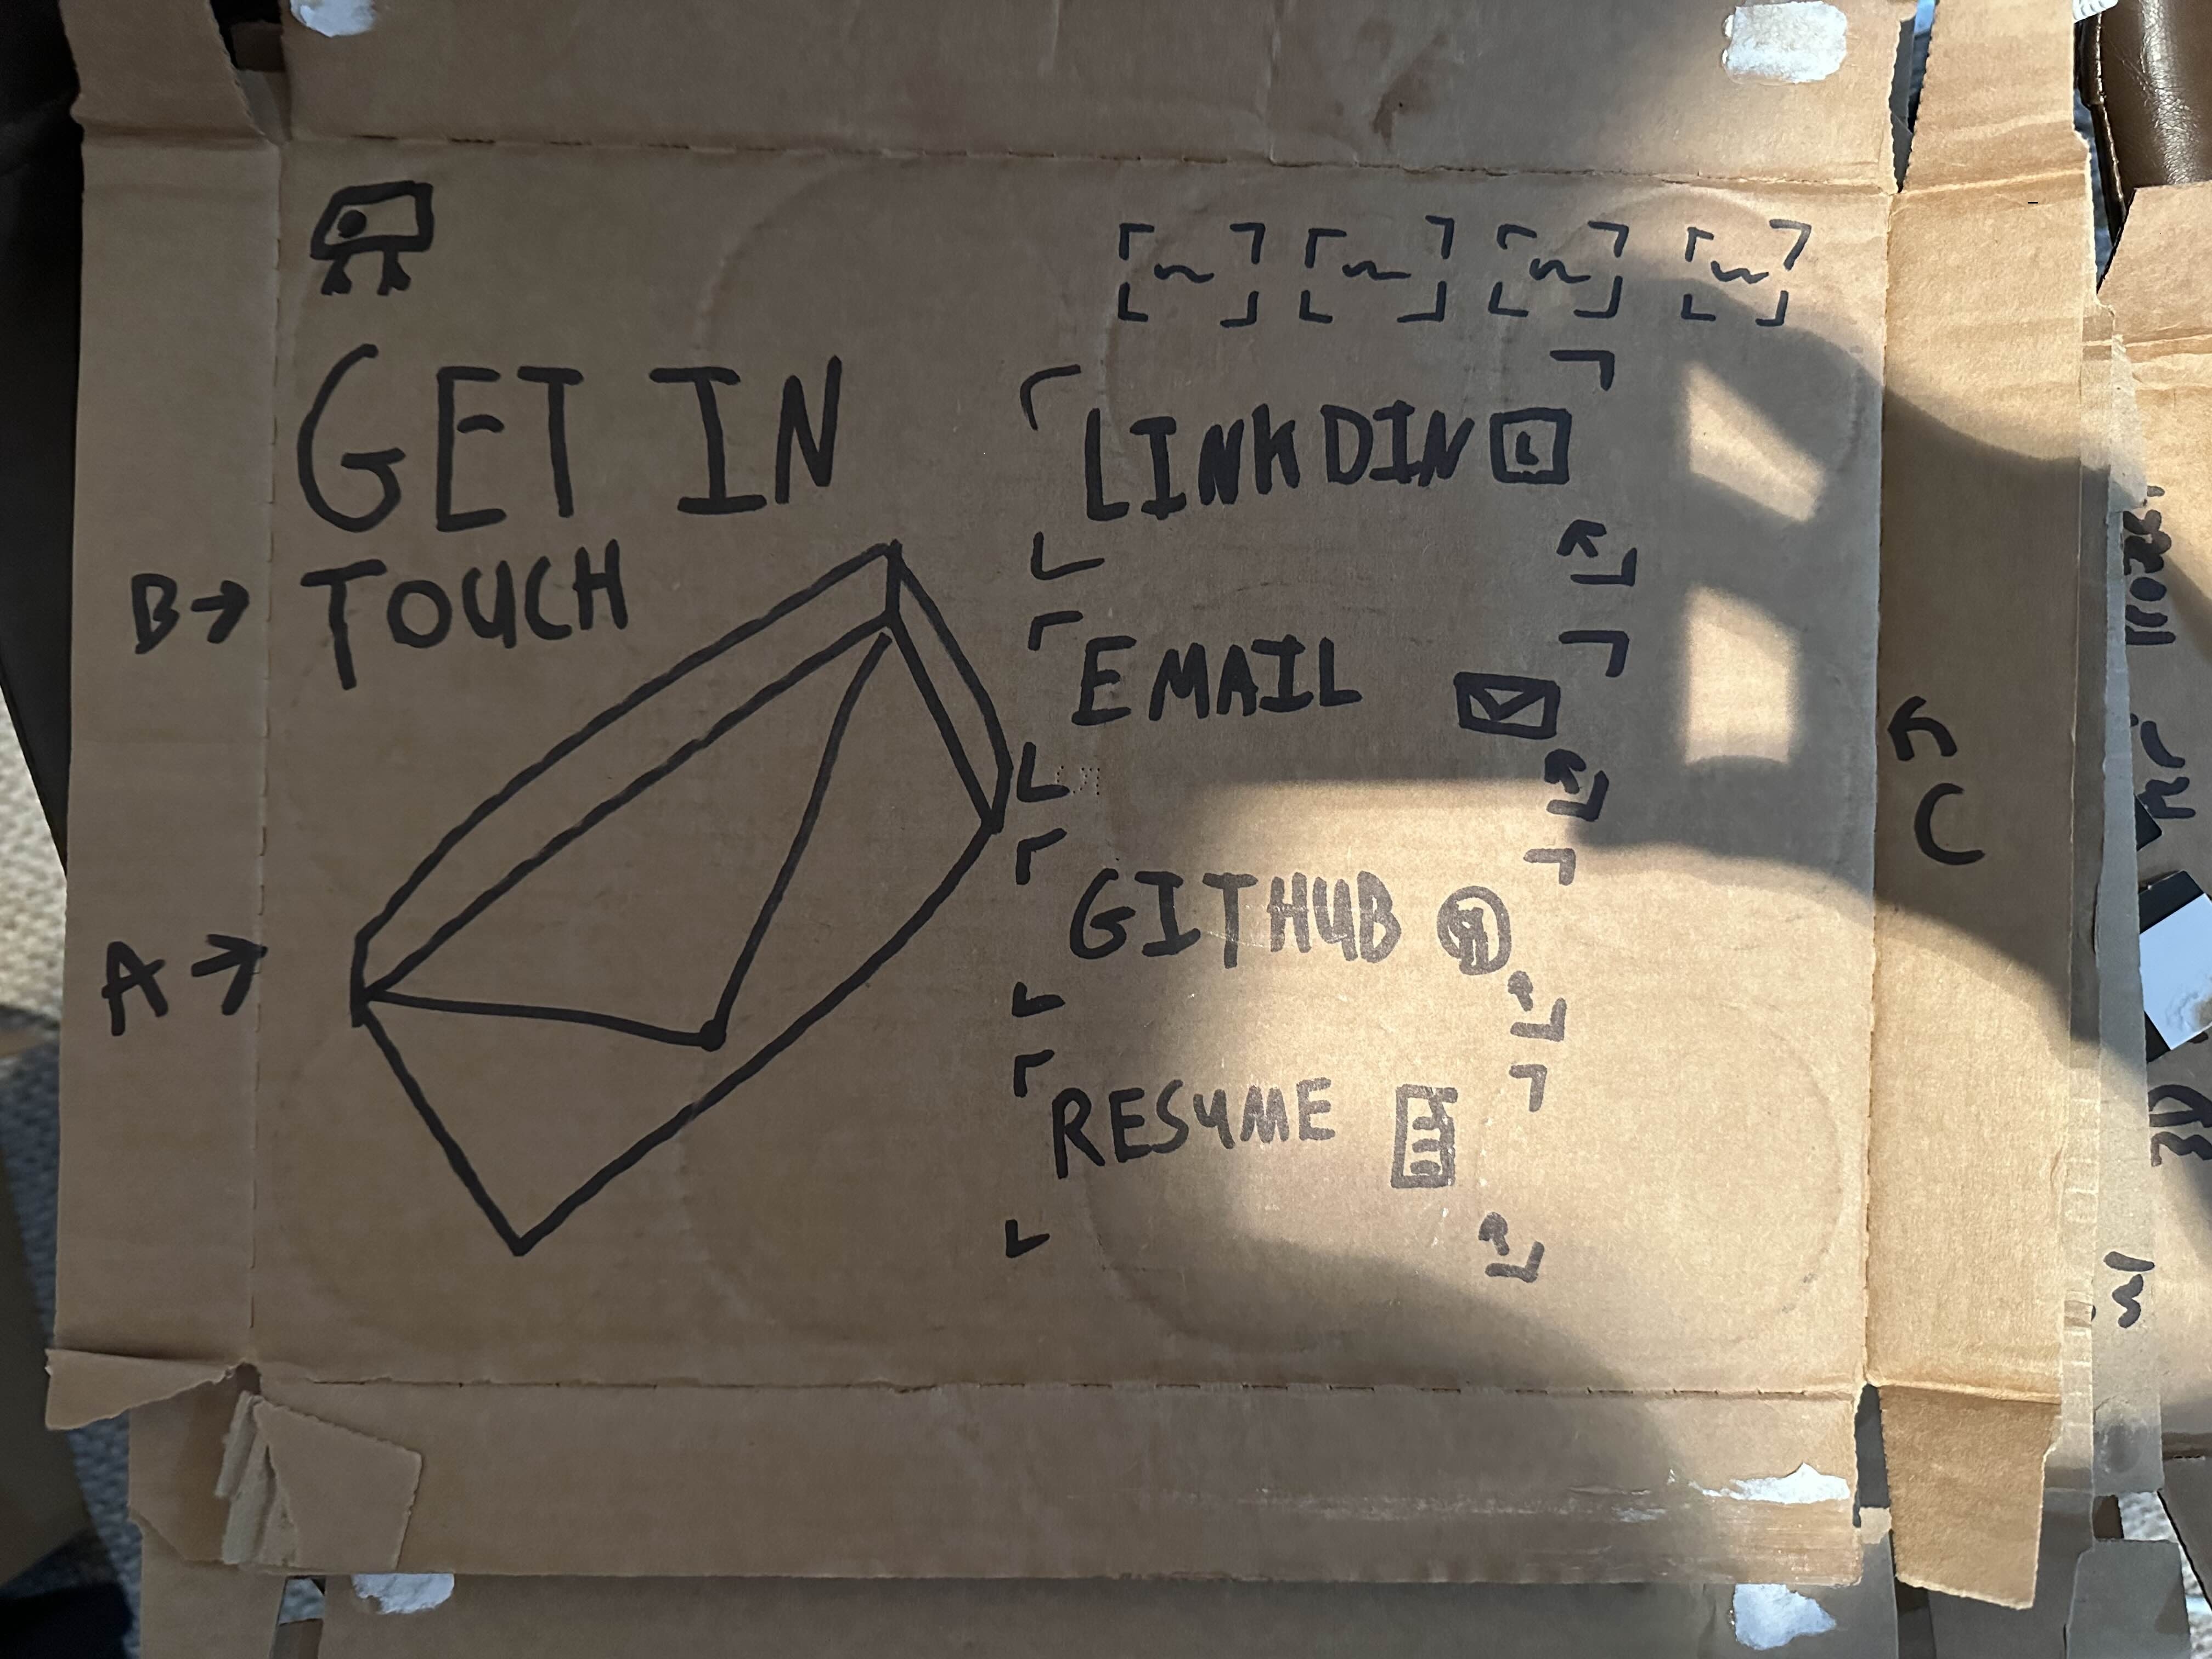 GET IN
TOUCH
B→
A→
LINKDIN L
EMAIL
GITHUB
RESUME
C
3D